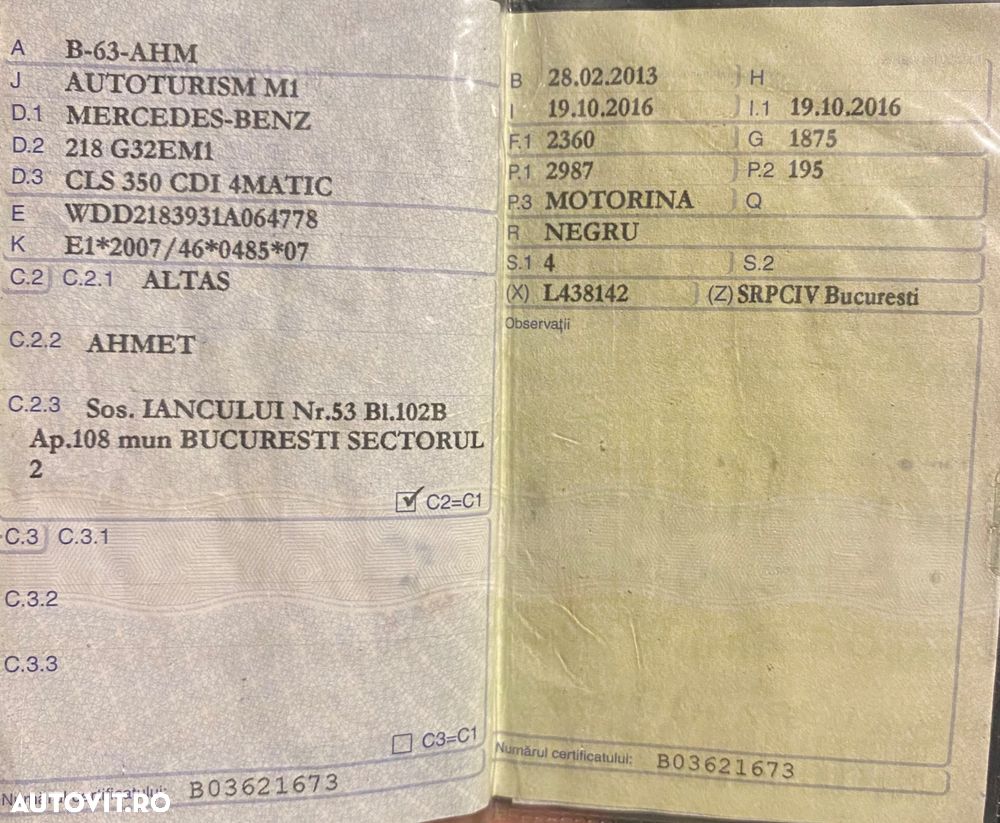 A B-63-AHM
J AUTOTURISM M1
D.1 MERCEDES-BENZ
D.2 218 G32EM1
D.3 CLS 350 CDI 4MATIC
E WDD2183931A064778
K E1*2007/46*0485*07
C.2 C.2.1 ALTAS
C.2.2 AHMET
C.2.3 Sos. IANCULUI Nr.53 Bl.102B
Ap.108 mun BUCURESTI SECTORUL
2
C2=C1
C.3 C.3.1
C.3.2
C.3.3
C3=C1
Numărul certificatului: B03621673
B 28.02.2013 H
I 19.10.2016 I.1 19.10.2016
F.1 2360 G 1875
P.1 2987 P.2 195
P.3 MOTORINA Q
R NEGRU
S.1 4 S.2
(X) L438142 (Z) SRPCIV Bucuresti
Observații
Numărul certificatului: B03621673
AUTOVIT.RO